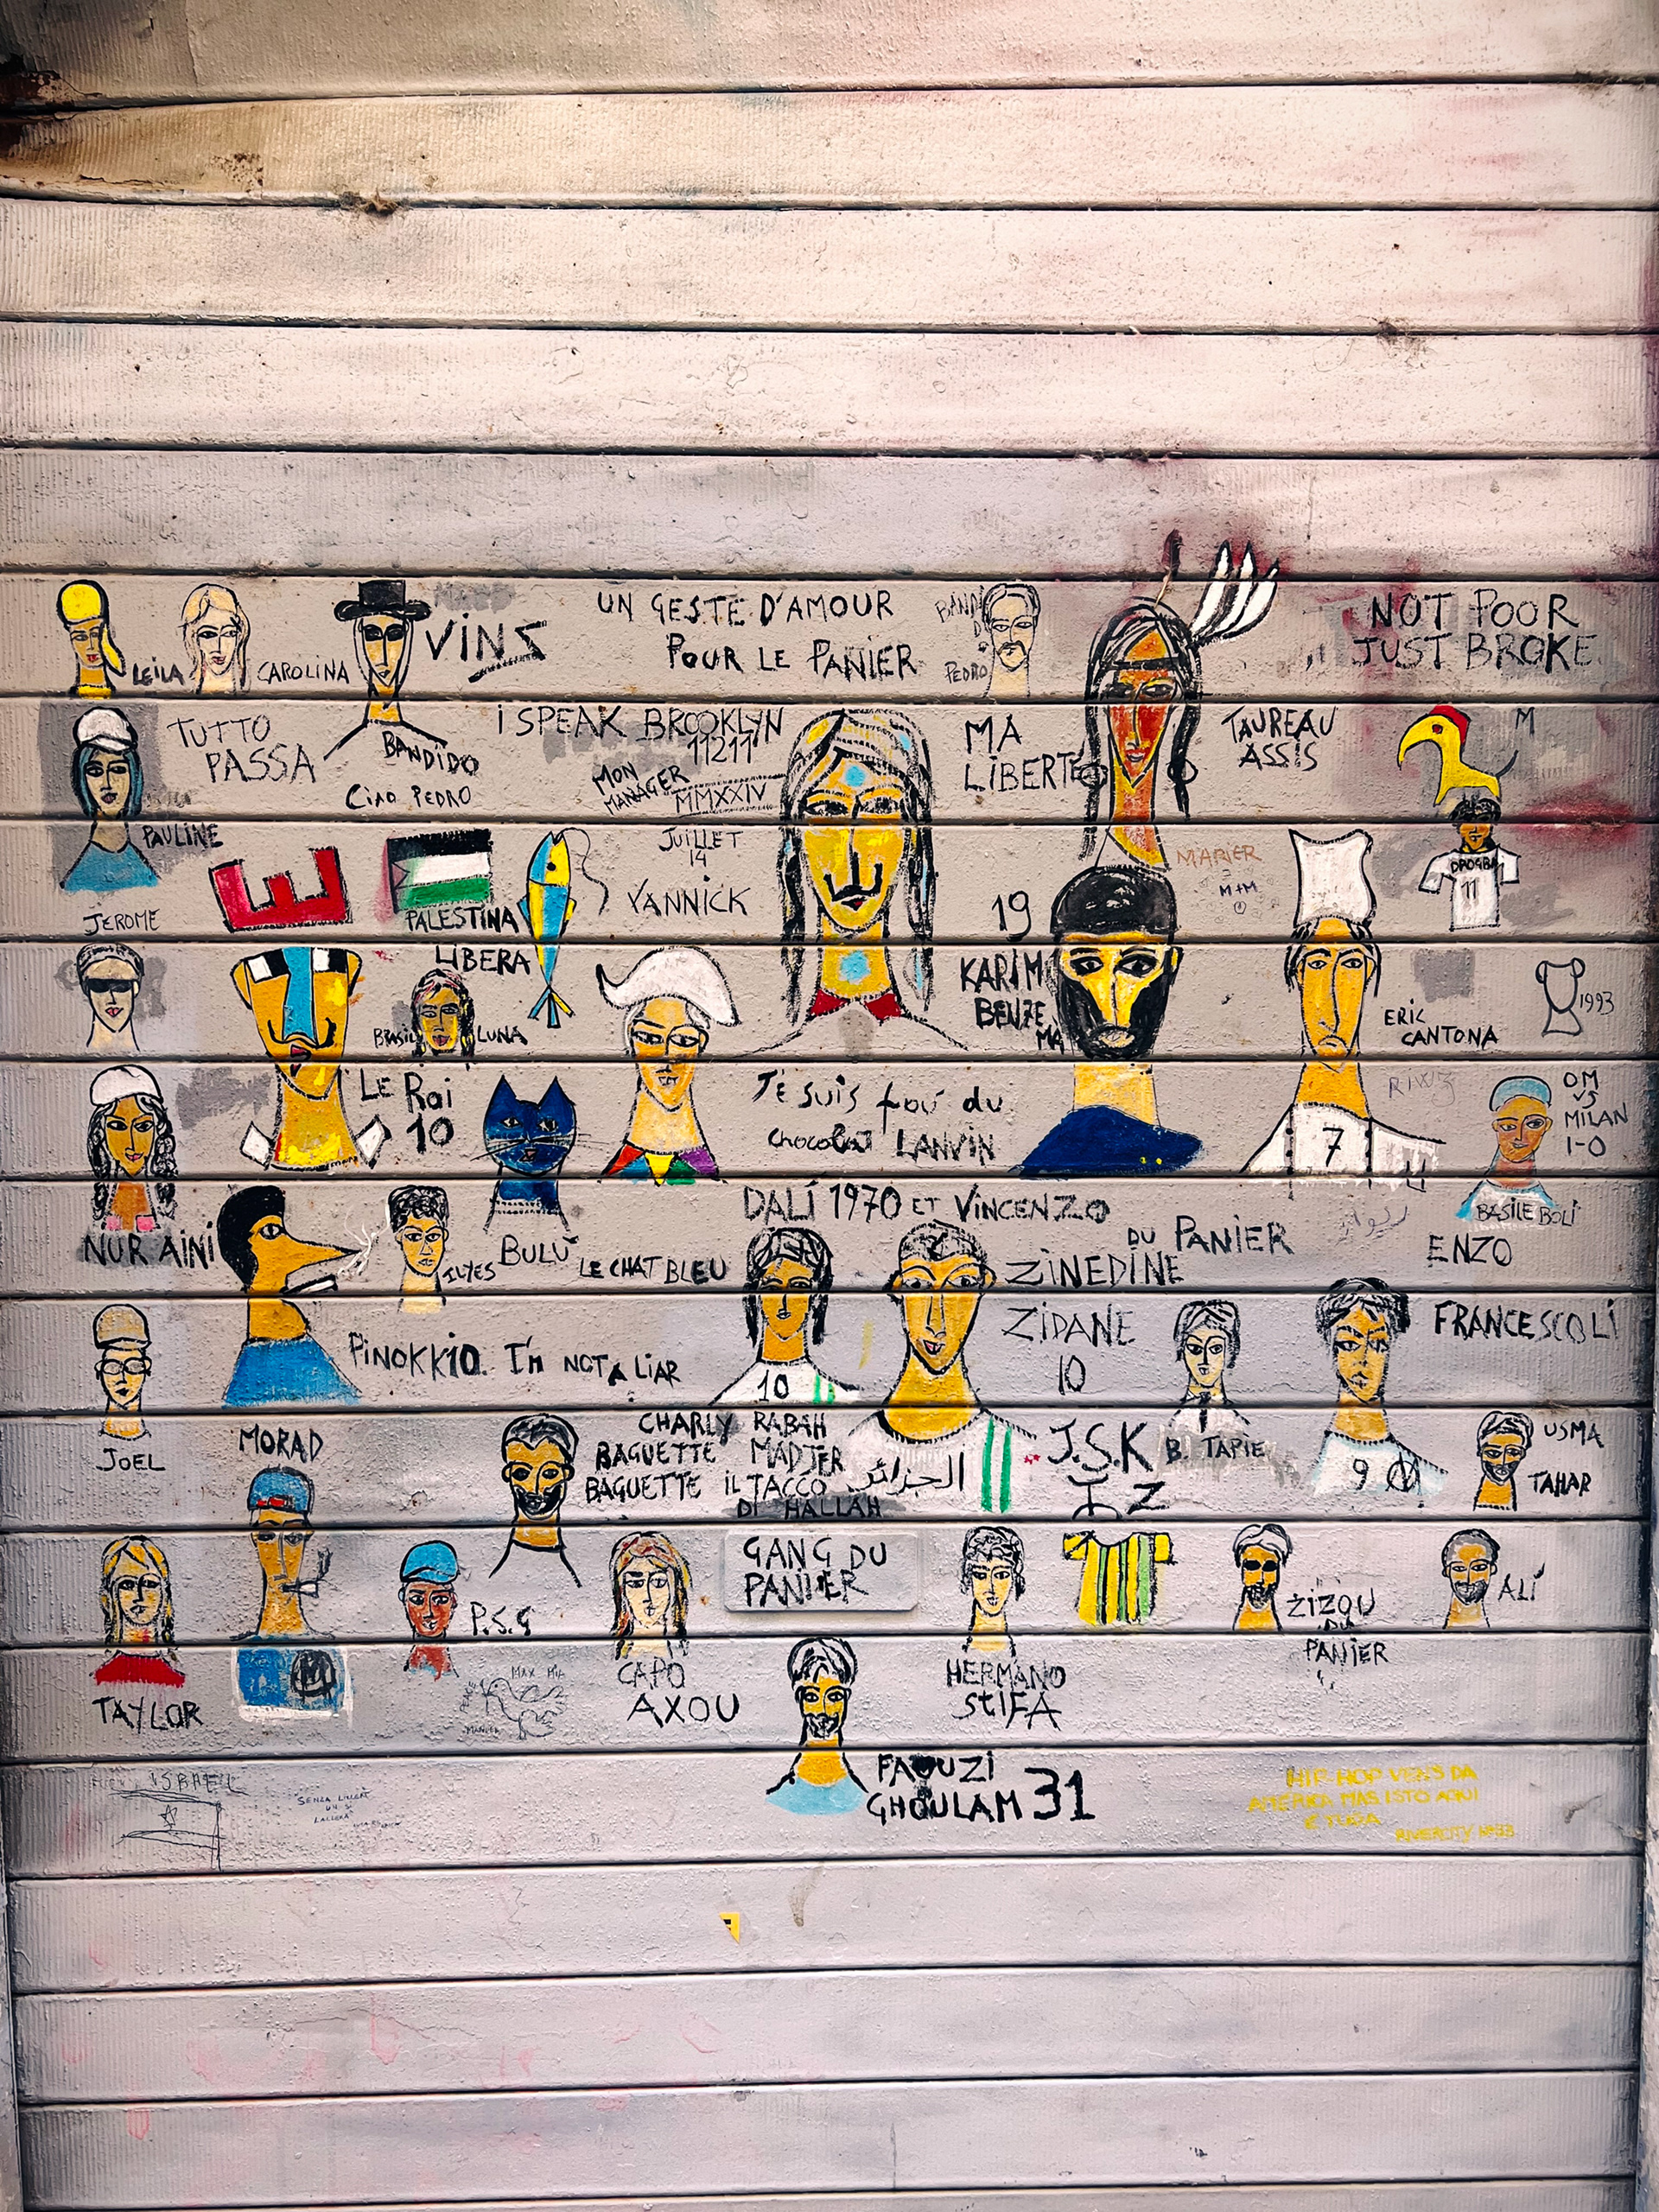 UN GESTE D'AMOUR
POUR LE PANIER
VINS
LEILA
CAROLINA
PEDRO
NOT POOR
JUST BROKE
TUTTO
PASSA
BANDIDO
CIAO PEDRO
I SPEAK BROOKLYN
11211
MON
MANAGER
MMXXIV
MA
LIBERTÉ
TAUREAU
ASSIS
M
PAULINE
JUILLET
14
YANNICK
M+M
DROGBA
11
JEROME
PALESTINA
LIBERA
19
KARIM
BENZE
MA
ERIC
CANTONA
1993
BRASIL
LUNA
LE Roi
10
Je suis fou du
chocolat LANVIN
7
OM
VS
MILAN
1-0
BASILE BOLI
DALÍ 1970 ET VINCENZO
DU PANIER
NUR AINI
ILYES
BULU
LE CHAT BLEU
ENZO
FRANCESCOLI
ZINEDINE
ZIDANE
10
PINOKKIO. I'm NOT A LIAR
10
JOEL
MORAD
CHARLY
BAGUETTE
BAGUETTE
RABAH
MADJER
IL TACCO
DI HALLAH
الجزائر
J.S.K
ⵣ Z
B. TAPIE
9
USMA
TAHAR
GANG DU
PANIER
P.S.G
ZIZOU
DU
PANIER
ALÍ
TAYLOR
CAPO
AXOU
HERMANO
STIFA
MAX MIA
PEACE
FAOUZI
GHOULAM 31
ISRAEL
HIP HOP VENS DA
AMÉRICA MAS ISTO AQUI
É YUGA